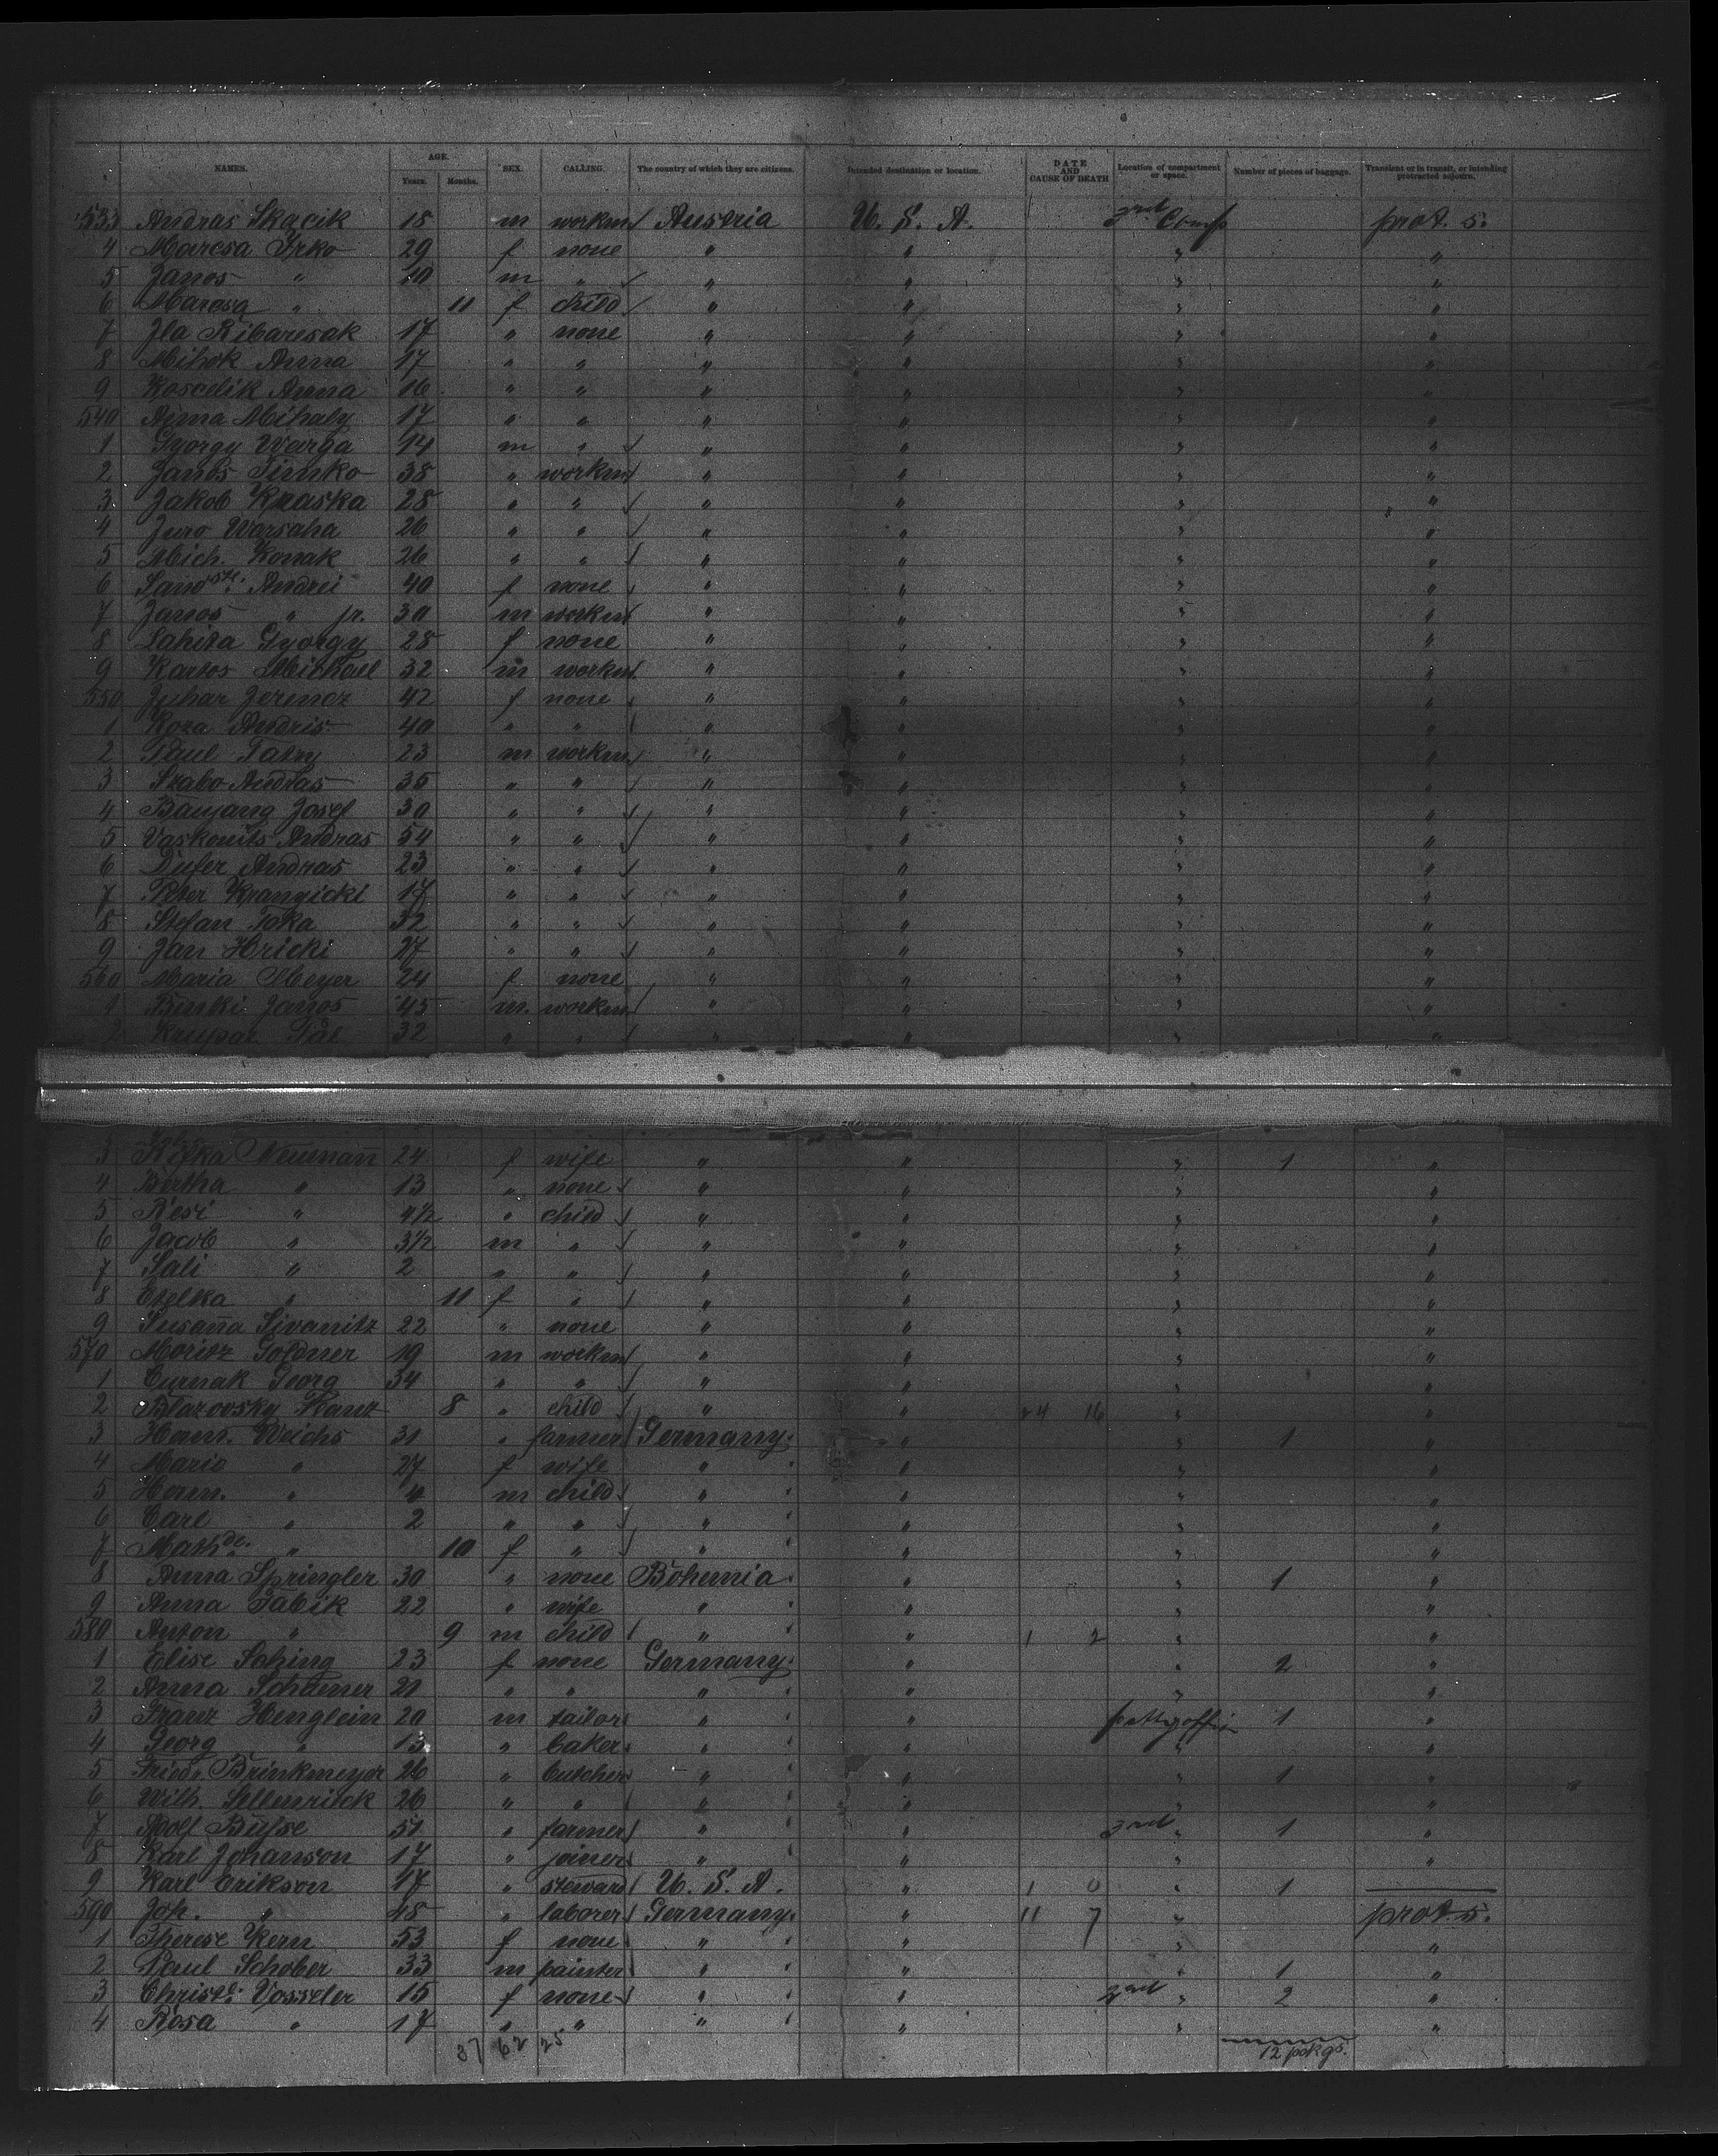 NAMES. AGE. Years. Months. SEX. CALLING. The country of which they are citizens. Intended destination or location. DATE AND CAUSE OF DEATH Location of compartment or space. Number of pieces of baggage. Transient or in transit, or intending protracted sojourn.
533 Andras Skacik 18 m workm Austria U. S. A. 3rd Comp prot. s.
4 Marcsa Irko 29 f none " " " "
5 Janos " 20 m " " " " "
6 Marcsa " 11 f child " " " "
7 Ila Ribaresak 17 " none " " " "
8 Mihok Anna 17 " " " " " "
9 Koscelik Anna 16 " " " " " "
540 Anna Mihaly 17 " " " " " "
1 Gyorgy Warga 14 m " " " " "
2 Janos Simko 38 " workm " " " "
3 Jakob Kraska 28 " " " " " "
4 Juro Warsaha 26 " " " " " "
5 Mich. Konak 26 " " " " " "
6 Andrei 40 f none " " " "
7 Janos " jr. 30 m workm " " " "
8 Lahita Gyorgy 28 f none " " " "
9 Kartos Michael 32 m workm " " " "
550 Juhar Jerencz 42 f none " " " "
1 Koza Andris 40 " " " " " "
2 Paul Tatry 23 m workm " " " "
3 Szabo Andras 35 " " " " " "
4 Banyang Josef 30 " " " " " "
5 Vaskonits Andras 54 " " " " " "
6 Dufer Andras 23 " " " " " "
7 Peter Krangicki 17 " " " " " "
8 Stefan Joka 32 " " " " " "
9 Jan Hricki 27 " " " " " "
560 Maria Meyer 24 f none " " " "
1 Funki Janos 45 m. workm " " " "
2 Krupar Pal 32 " " " " " "
3 Neuman 24 f wife " " " 1 "
4 Bertha " 13 " none " " " "
5 Resi " 4 1/2 " child " " " "
6 Jacob " 3 1/2 m " " " " "
7 Sali " 2 " " " " " "
8 Etelka " 11 f " " " " "
9 Susana Sivanitz 22 " none " " " "
570 Moritz Goldner 19 m workm " " " "
1 Curnak Georg 34 " " " " " "
2 Blazovsky Franz 8 " child " " 24 16 " "
3 Herm. Weichs 31 " farmer Germany " " 1 "
4 Marie " 27 f wife " " " "
5 Herm. " 4 m child " " " "
6 Carl " 2 " " " " " "
7 Mathde. " 10 f " " " " "
8 Anna Springler 30 " none Bohemia " " 1 "
9 Anna Fabik 22 " wife " " " "
580 Anton " 9 m child " " 1 2 " "
1 Elise Saking 23 f none Germany " " 2 "
2 Anna Schauer 21 " " " " " "
3 Franz Henglein 20 m tailor " " petty offic 1 "
4 Georg " 13 " baker " " " "
5 Friedr. Brinkmeyer 26 " butcher " " 1 "
6 Wilh. Sellenrick 26 " " " " " "
7 Adolf Busse 51 " farmer " " 3rd " 1 "
8 Karl Johanson 17 " joiner " " " "
9 Karl Erikson 17 " steward U. S. A. " 1 0 " 1
590 Joh. " 48 " laborer Germany " 11 7 " prot. s.
1 Therese Kern 53 f none " " " "
2 Paul Schober 33 m painter " " " 1 "
3 Christe. Vosseler 15 f none " " 2nd " 2 "
4 Rosa " 17 " " " " " "
37 62 25 12 pckgs.